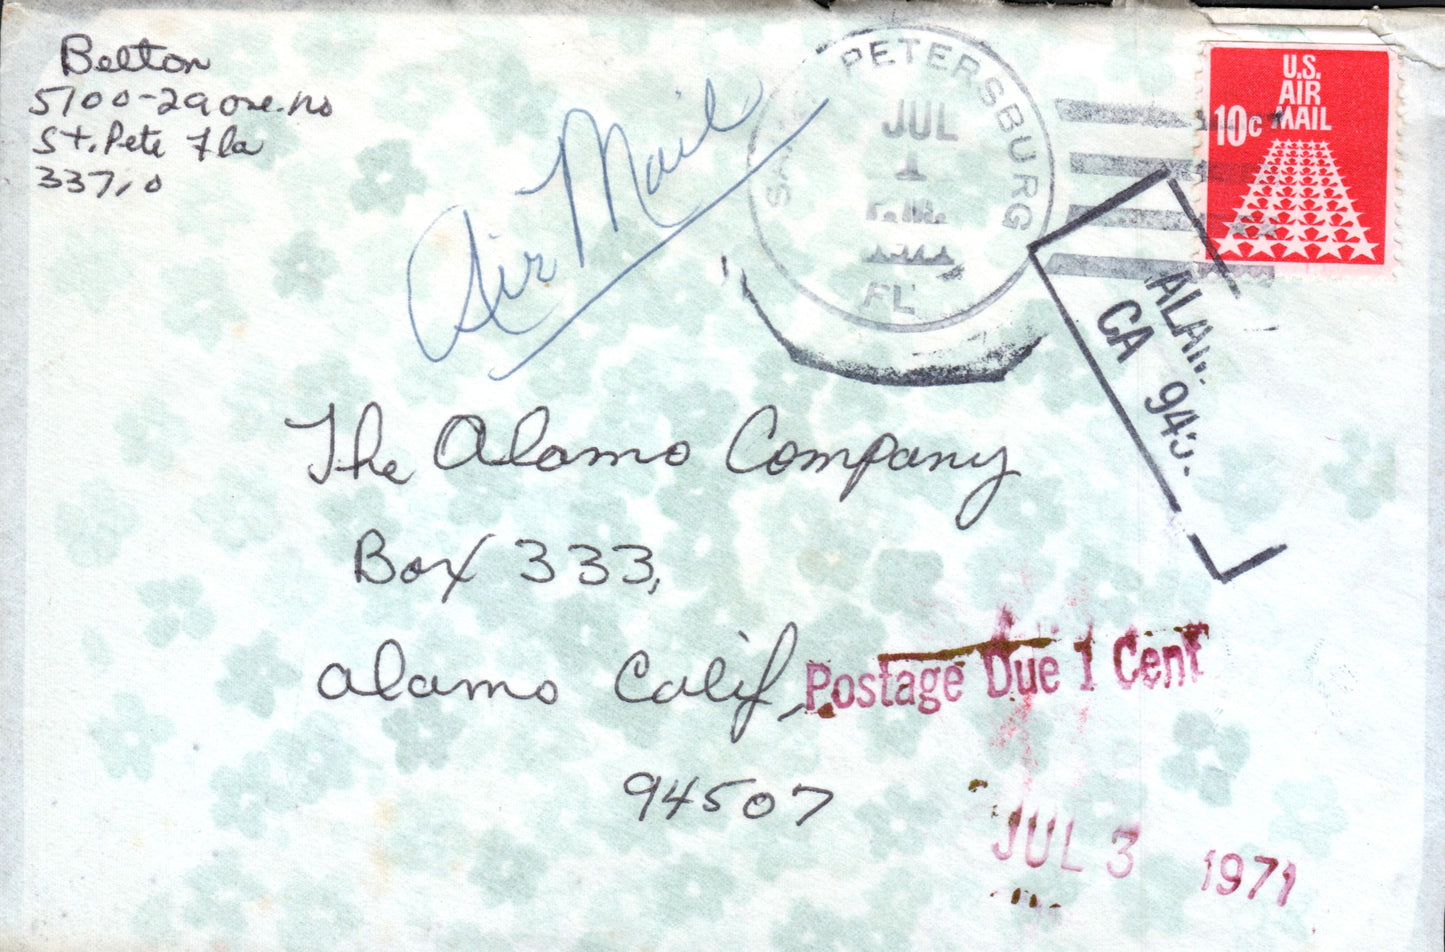 Belton
5700-29 ave. no
St. Pete Fla
33710
Air Mail
PETERSBURG
JUL
1
PM
FL
U.S.
AIR
MAIL
10c
CA 945
The Alamo Company
Box 333,
Alamo Calif,
94507
Postage Due 1 Cent
JUL 3 1971